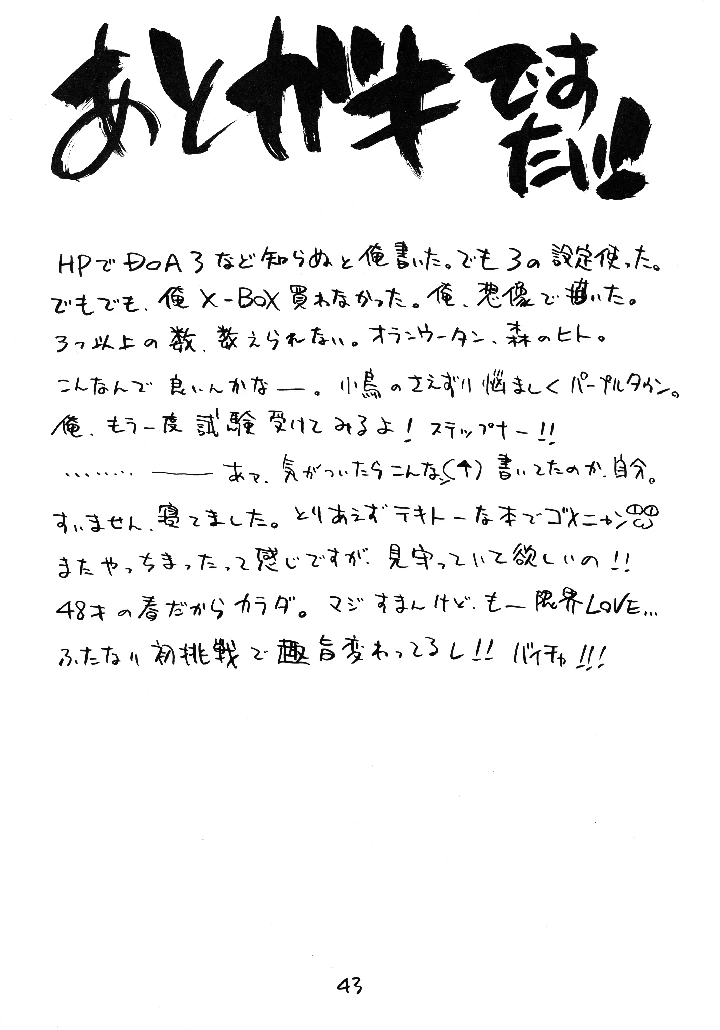 あとガキですたい!!
HPでDOA3など知らぬと俺書いた。でも3の設定使った。
でもでも、俺X-BOX買わなかった。俺、想像で描いた。
3つ以上の数、数えられない。オランウータン、森のヒト。
こんなんで良いんかなー。小鳥のさえずり悩ましくパープルタウン。
俺、もう一度試験受けてみるよ!ステップナー!!
‥‥‥‥ ──あて、気がついたらこんな(↑)書いてたのか、自分。
すいません、寝てました。とりあえずテキトーな本でゴメニャン
またやっちまったって感じですが、見守っていて欲しいの!!
48才の春だからカラダ。マジすまんけど、もー限界LOVE…
ふたなり初挑戦で趣旨変わってるし!!バイチャ!!!
43